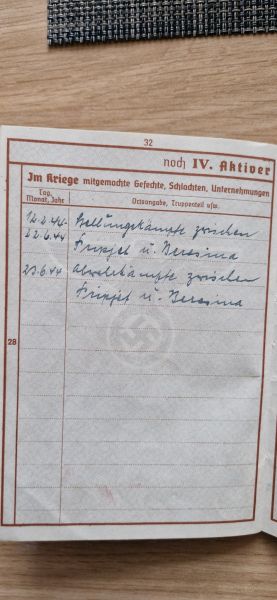 32
noch IV. Aktiver
Im Kriege mitgemachte Gefechte, Schlachten, Unternehmungen
Tag, Monat, Jahr
Ortsangabe, Truppenteil usw.
12.2.44- Stellungskämpfe zwischen
22.6.44 Pripjet u. Beresina
23.6.44 Abwehrkämpfe zwischen
Pripjet u. Beresina
28